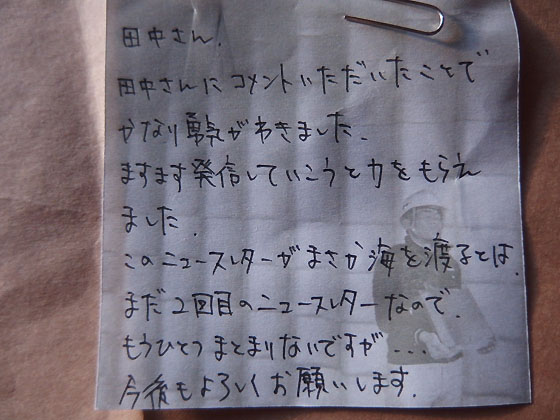 田中さん.
田中さんにコメントいただいたことで
かなり勇気がわきました.
ますます発信していこうと力をもらえ
ました.
このニュースレターがまさか海を渡るとは.
まだ2回目のニュースレターなので.
もうひとつまとまりないですが...
今後もよろしくお願いします.